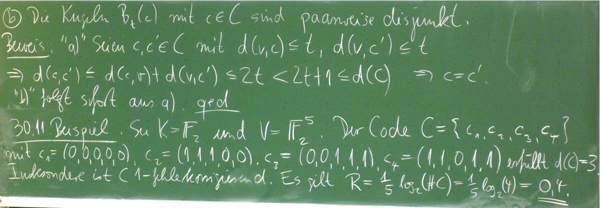 (b) Die Kugeln B_t(c) mit c∈C sind paarweise disjunkt.
Beweis. "a)" Seien c,c'∈C mit d(v,c)≤t, d(v,c')≤t
⇒ d(c,c') ≤ d(c,v)+d(v,c') ≤ 2t < 2t+1 ≤ d(C) ⇒ c=c'.
"b)" folgt sofort aus a). qed
30.11 Beispiel. Sei K=𝔽₂ und V=𝔽₂⁵. Der Code C={c₁,c₂,c₃,c₄}
mit c₁=(0,0,0,0,0), c₂=(1,1,1,0,0), c₃=(0,0,1,1,1), c₄=(1,1,0,1,1) erfüllt d(C)=3.
Insbesondere ist C 1-fehlerkorrigierend. Es gilt R = 1/5 log₂(#C) = 1/5 log₂(4) = 0,4.